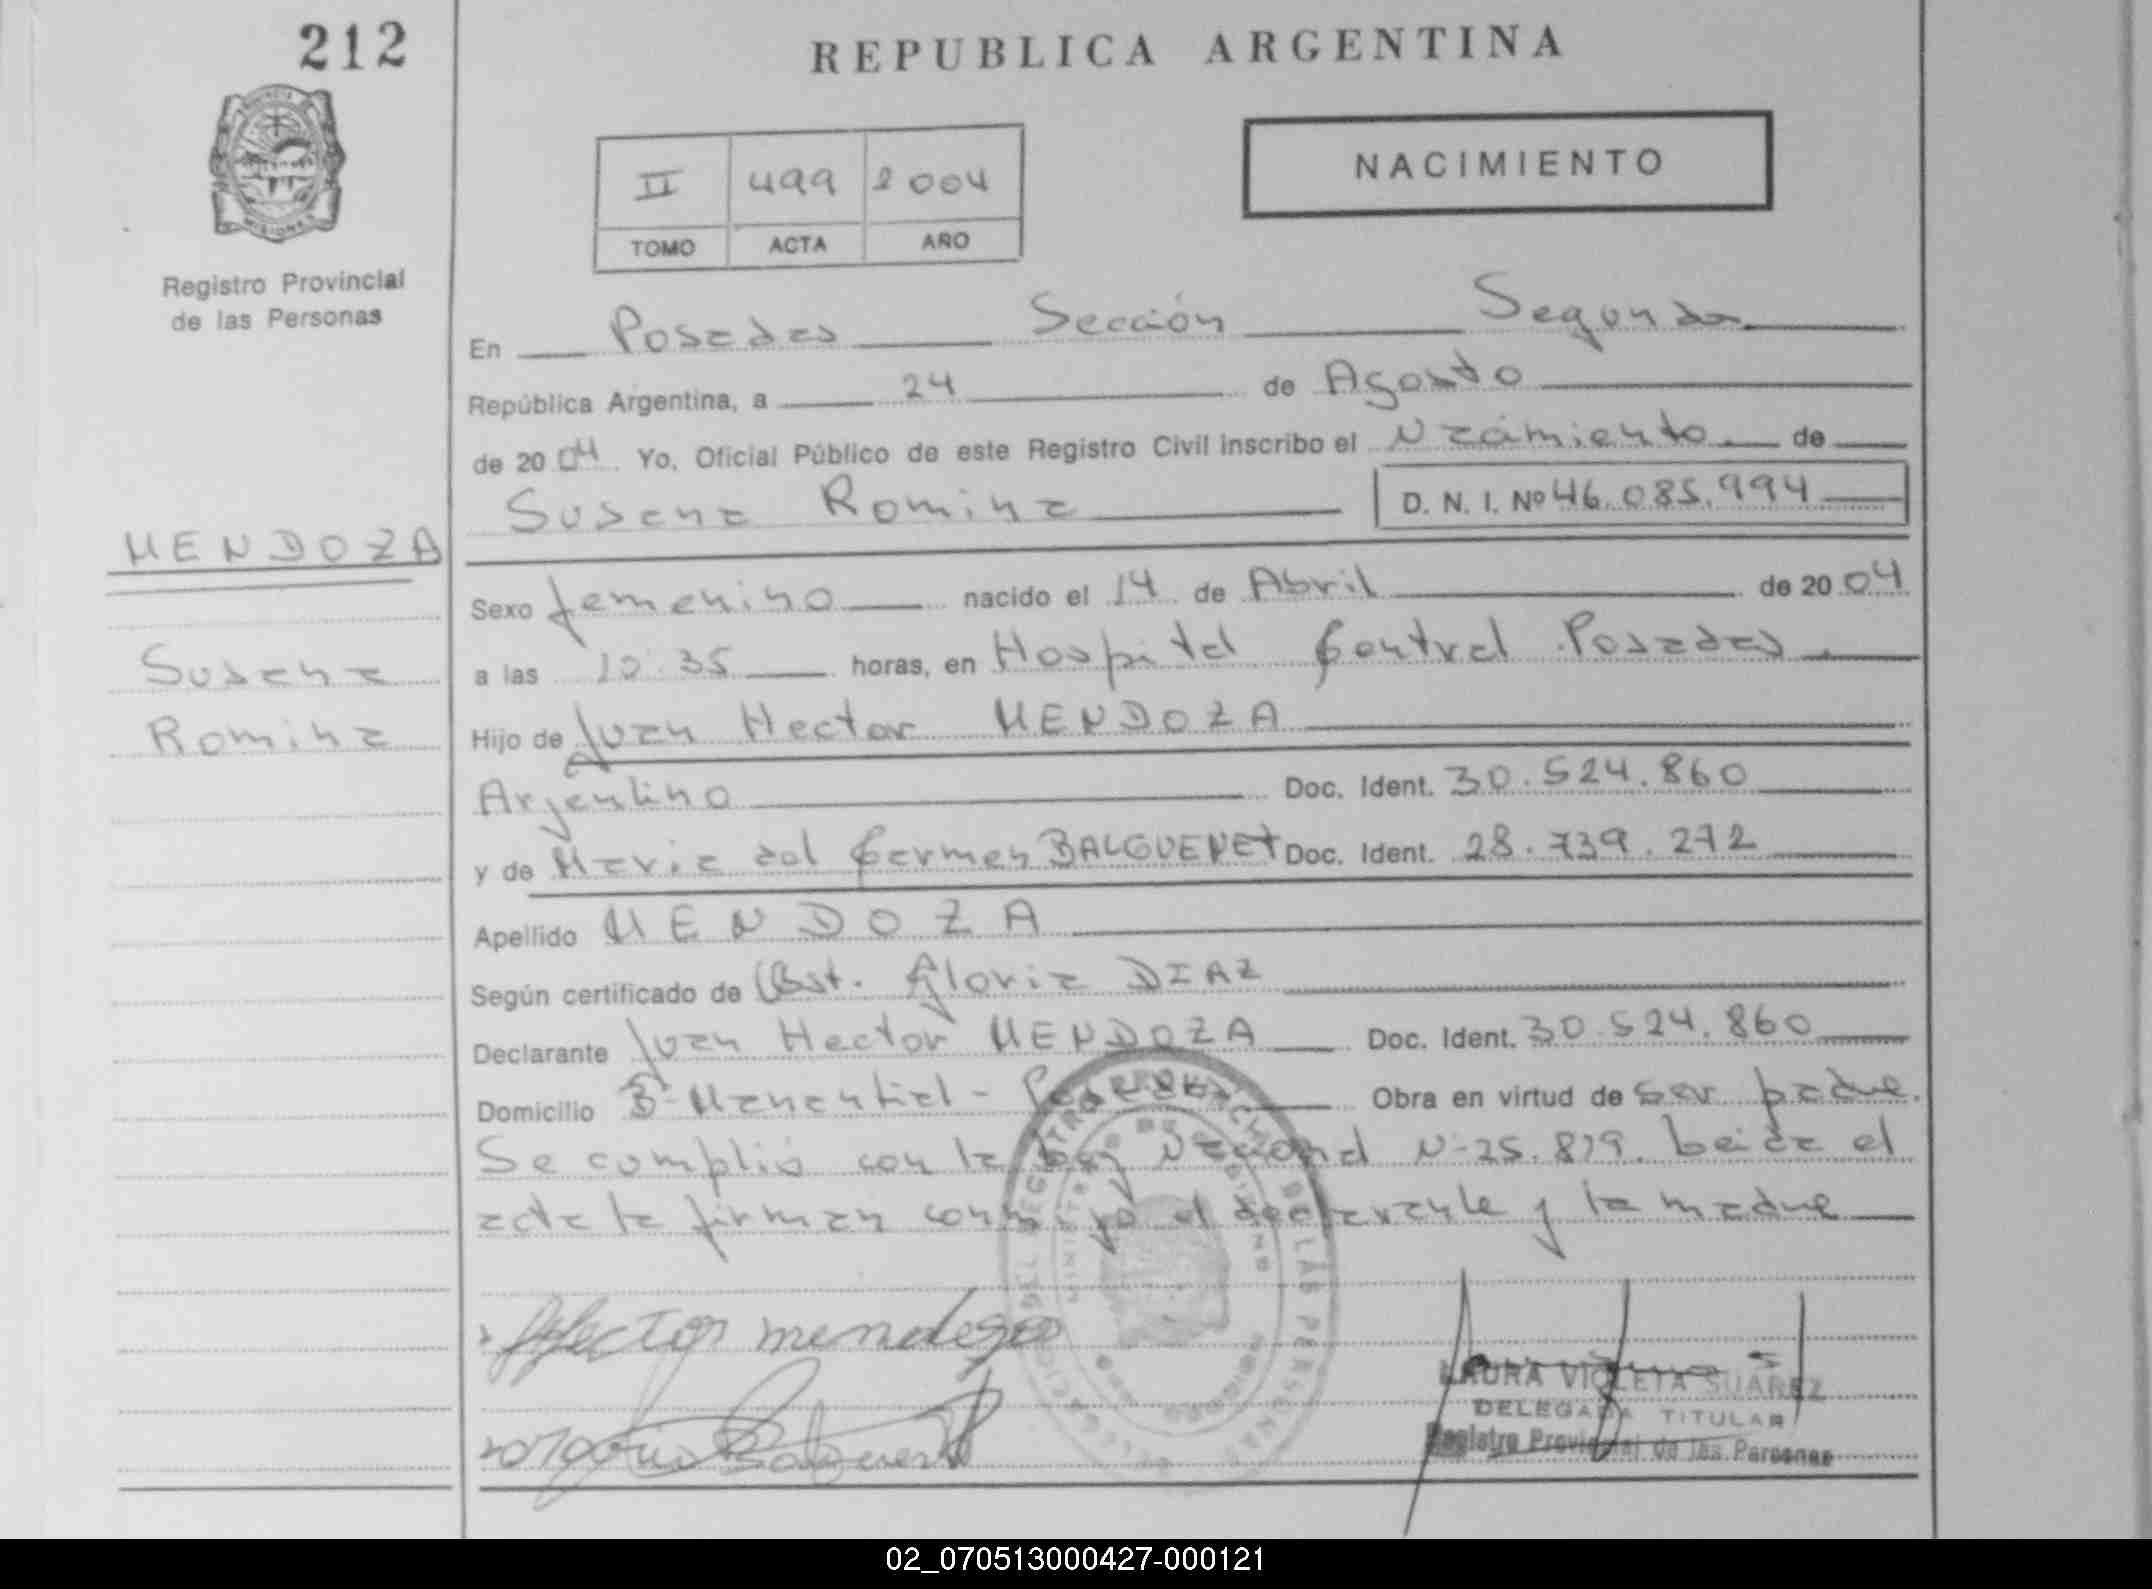 212
REPUBLICA ARGENTINA
NACIMIENTO
II 499 2004
TOMO ACTA AÑO
Registro Provincial
de las Personas
En Posadas Sección Segunda
República Argentina, a 24 de Agosto
de 2004 Yo, Oficial Público de este Registro Civil inscribo el Nacimiento de
Susana Romina D. N. I. Nº 46.085.994
MENDOZA
Susana
Romina
Sexo femenino nacido el 14 de Abril de 2004
a las 10:35 horas, en Hospital Central Posadas
Hijo de Juan Hector MENDOZA
Argentino Doc. Ident. 30.524.860
y de Maria del Carmen BALGUENET Doc. Ident. 28.739.272
Apellido MENDOZA
Según certificado de Obst. Gloria DIAZ
Declarante Juan Hector MENDOZA Doc. Ident. 30.524.860
Domicilio Bº Manantial - Obra en virtud de ser padre.
Se cumplió con la Ley Nacional Nº 25.819. Leida el
acta la firman conmigo el declarante y la madre
Hector mendoza
LAURA VIOLETA SUAREZ
DELEGADA TITULAR
Registro Provincial de las Personas
02_070513000427-000121